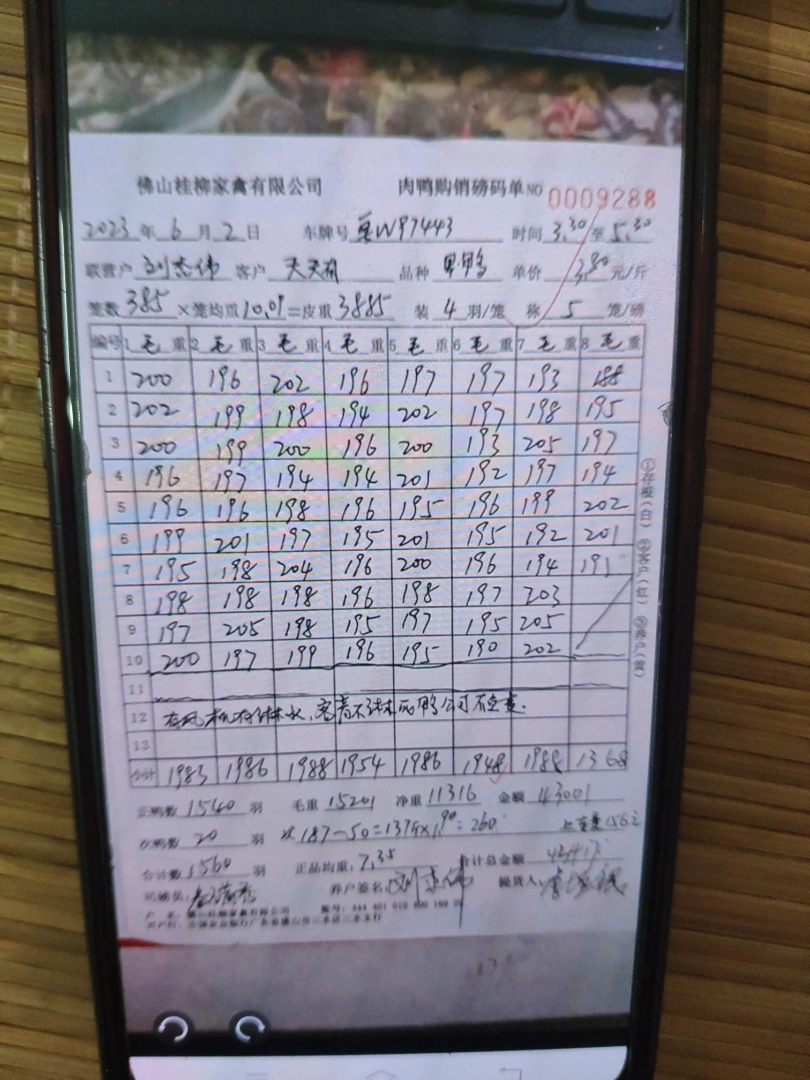 佛山桂柳家禽有限公司 肉鸭购销磅码单 NO 0009288
2023 年 6 月 2 日 车牌号 W97443 时间 3.30 至 5.30
联营户 刘志伟 客户 天天 品种 鸭 单价 3.80 元/斤
笼数 385 ×笼均重 10.09 =皮重 3885 装 4 羽/笼 称 5 笼/磅
编号 1 毛 重 2 毛 重 3 毛 重 4 毛 重 5 毛 重 6 毛 重 7 毛 重 8 毛 重
1 200 196 202 196 197 197 193 188
2 202 199 198 194 202 197 198 195
3 200 199 200 196 200 193 205 197
4 196 197 194 194 201 192 197 194
5 196 196 198 196 195 196 199 202
6 199 201 197 195 201 195 192 201
7 195 198 204 196 200 196 194 191
8 198 198 198 196 198 197 203
9 197 205 198 195 197 195 205
10 200 197 199 196 195 190 202
11
12 有风机有淋水,客不淋鸭公司不负责.
13
小计 1983 1986 1988 1954 1986 1948 1988 1368
正鸭数 1540 羽 毛重 15201 净重 11316 金额 43001
次鸭数 20 羽 次 187-50=137斤×1.90=260 156元
合计数 1560 羽 正品均重: 7.35 合计总金额
司磅员: 养户签名: 刘志伟 提货人:
户 名: 佛山桂柳家禽有限公司 账号:
①存根(白) ②客户(红) ③养户(黄)